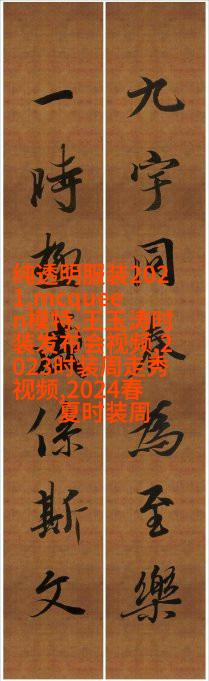 九宇同為至樂
一時係斯文
纯透明服装202
1,mcquee
n模特,王玉涛时
装发布会视频,2
023时装周走秀
视频,2024春
夏时装周